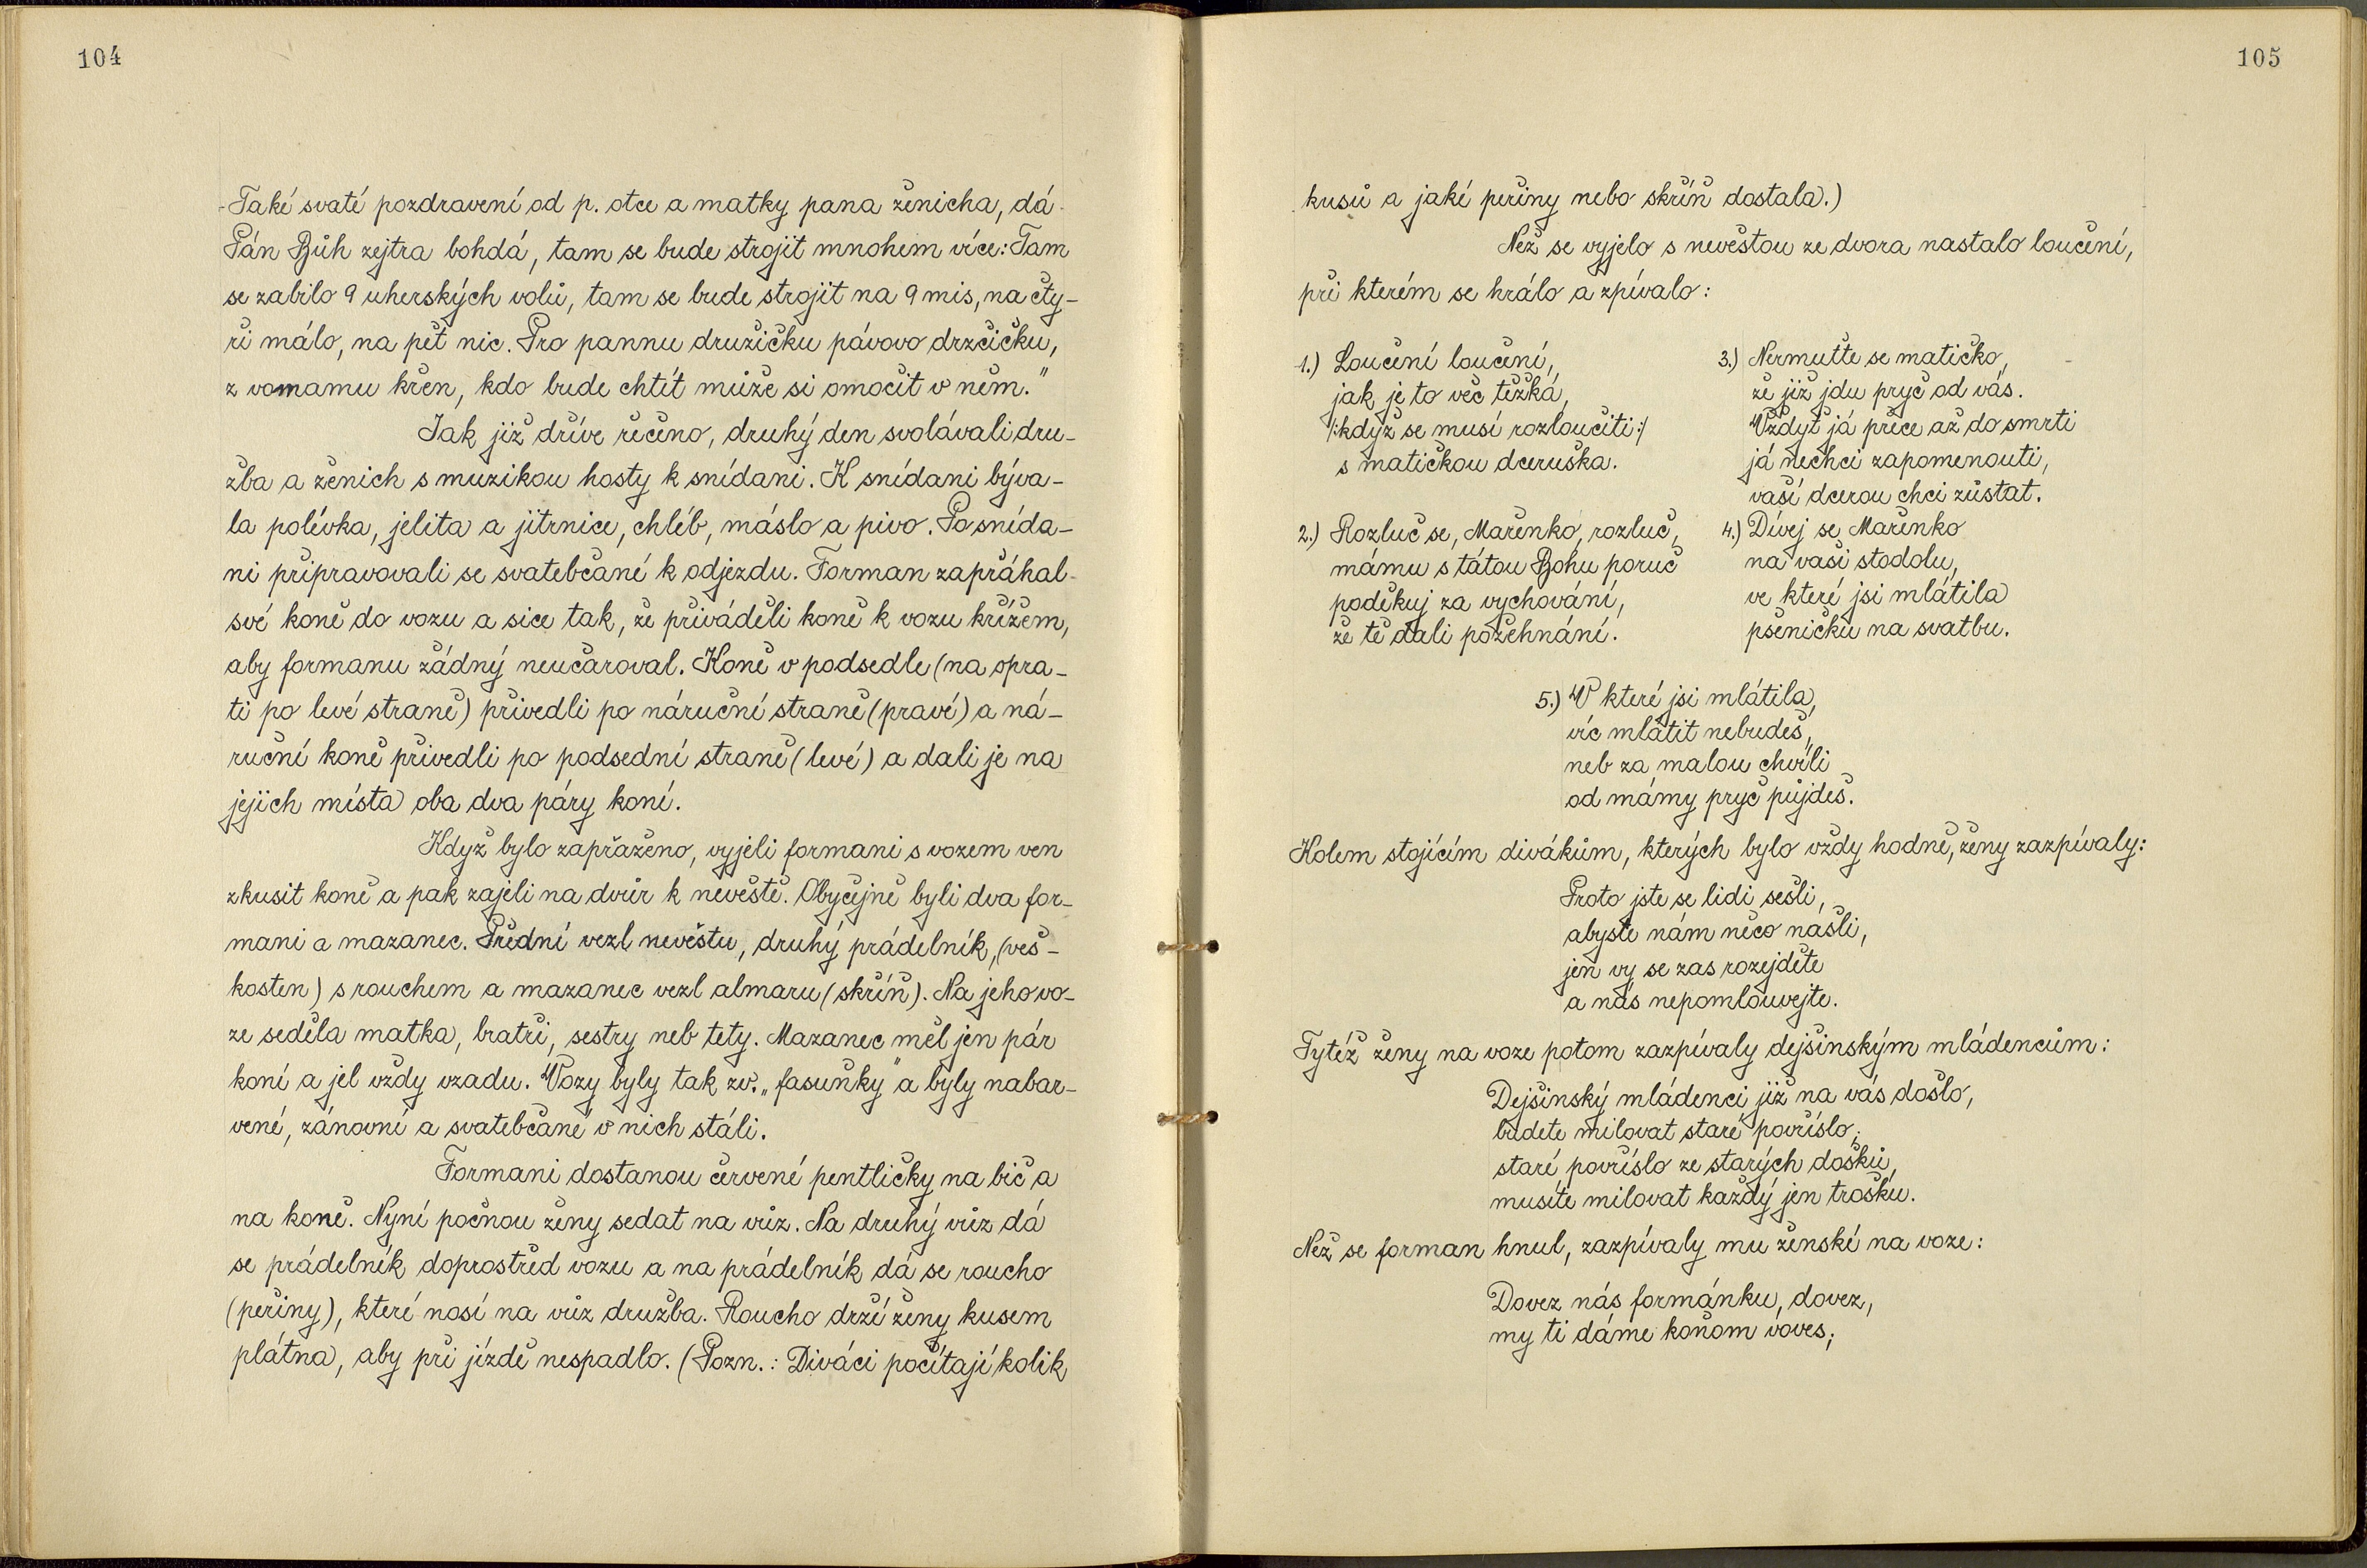 104
-Také svaté pozdravení od p. otce a matky pana ženicha, dá-
Pán Bůh zejtra bohdá, tam se bude strojit mnohem více: Tam
se zabilo 9 uherských volů, tam se bude strojit na 9 mis, na čty-
ři málo, na pět nic. Pro pannu družičku pávovo drzčičku,
z vomamu křen, kdo bude chtít může si omočit v něm."
Jak již dříve řečeno, druhý den svolávali dru-
žba a ženich s muzikou hosty k snídani. K snídani býva-
la polévka, jelita a jitrnice, chléb, máslo a pivo. Po snída-
ni připravovali se svatebčané k odjezdu. Forman zapřáhal
své koně do vozu a sice tak, že přiváděli koně k vozu křížem,
aby formanu žádný neučaroval. Koně v podsedle (na opra-
ti po levé straně) přivedli po náruční straně (pravé) a ná-
ruční koně přivedli po podsední straně (levé) a dali je na
jejich místa oba dva páry koní.
Když bylo zapřaženo, vyjeli formani s vozem ven
zkusit koně a pak zajeli na dvůr k nevěstě. Obyčejně byli dva for-
mani a mazanec. Přední vezl nevěstu, druhý prádelník, (veš-
kosten) s rouchem a mazanec vezl almaru (skříň). Na jeho vo-
ze seděla matka, bratři, sestry neb tety. Mazanec měl jen pár
koní a jel vždy vzadu. Vozy byly tak zv. „fasuňky" a byly nabar-
vené, zánovní a svatebčané v nich stáli.
Formani dostanou červené pentličky na bič a
na koně. Nyní počnou ženy sedat na vůz. Na druhý vůz dá
se prádelník doprostřed vozu a na prádelník dá se roucho
(peřiny), které nosí na vůz družba. Roucho drží ženy kusem
plátna, aby při jízdě nespadlo. (Pozn.: Diváci počítají kolik
105
kusů a jaké peřiny nebo skříň dostala.)
Než se vyjelo s nevěstou ze dvora nastalo loučení,
při kterém se hrálo a zpívalo:
1.) Loučení loučení,
jak je to věc těžká,
/:když se musí rozloučiti:/
s matičkou dceruška.
2.) Rozluč se, Mařenko, rozluč,
mámu s tátou Bohu poruč
poděkuj za vychování,
že tě dali požehnání.
3.) Nermuťte se matičko,
že již jdu pryč od vás.
Vždyť já přece až do smrti
já nechci zapomenouti,
vaší dcerou chci zůstat.
4.) Dívej se Mařenko
na vaši stodolu,
ve které jsi mlátila
pšeničku na svatbu.
5.) V které jsi mlátila,
víc mlátit nebudeš,
neb za malou chvíli
od mámy pryč půjdeš.
Kolem stojícím divákům, kterých bylo vždy hodně, ženy zazpívaly:
Proto jste se lidi sešli,
abyste nám něco našli,
jen vy se zas rozejděte
a nás nepomlouvejte.
Tytéž ženy na voze potom zazpívaly dejšinským mládencům:
Dejšinský mládenci již na vás došlo,
budete milovat staré povříslo;
staré povříslo ze starých došků,
musíte milovat každý jen trošku.
Než se forman hnul, zazpívaly mu ženské na voze:
Dovez nás formánku, dovez,
my ti dáme koňom voves;